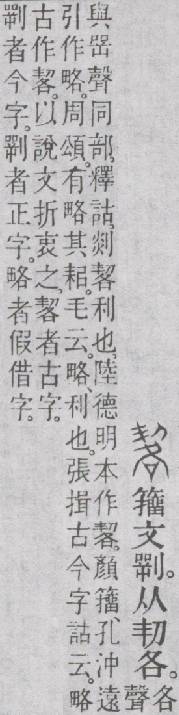 䂮籒文㓵。从㓞各。
各
聲
與咢聲同部。釋詁。剡䂮利也。陸德明本作䂮。顏籒孔沖遠
引作略。周頌。有略其耜。毛云。略、利也。張揖古今字詁云。略
古作䂮。以說文折衷之。䂮者古字。
㓵者今字。㓵者正字。略者假借字。